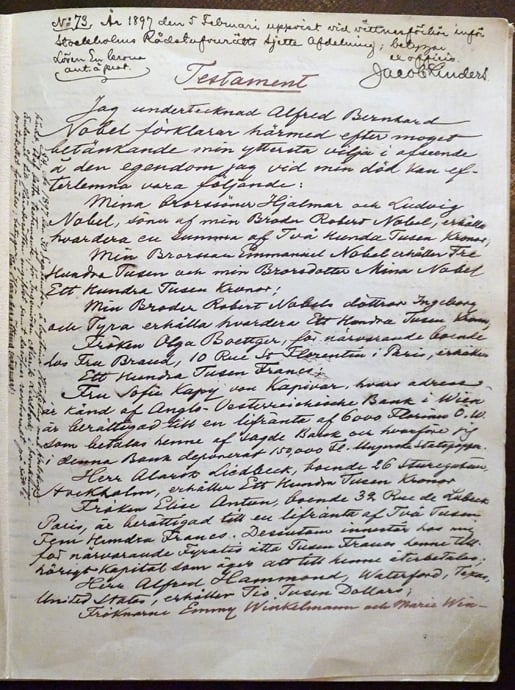 No 73, År 1897 den 5 Februari uppvist vid vittnesförhör inför
Stockholms Rådstufvurätts Sjette Afdelning; betygar
Lösen En krona
ex officio.
Jacob
Testament
Jag undertecknad Alfred Bernhard
Nobel förklarar härmed efter moget
betänkande min yttersta vilja i afseende
å den egendom jag vid min död kan ef-
terlemna vara följande:
Mina Brorsöner Hjalmar och Ludvig
Nobel, söner af min Broder Robert Nobel, erhålla
hvardera en summa af Två Hundra Tusen Kronor;
Min Brorson Emmanuel Nobel erhåller Tre
Hundra Tusen och min Brorsdotter Mina Nobel
Ett Hundra Tusen Kronor;
Min Broder Robert Nobels döttrar Ingeborg
och Tyra erhålla hvardera Ett Hundra Tusen Kronor,
Fröken Olga Boettger, för närvarande boende
hos Fru Brand, 10 Rue St Florentin i Paris, erhåller
Ett Hundra Tusen Francs;
Fru Sofie Kapy von Kapivar, hvars adress
är känd af Anglo-Oesterreichische Bank i Wien
är berättigad till en lifränta af 6000 Florins Ö.W.
som betalas henne af sagde Bank och hvarföre jag
i denna Bank deponerat 150,000 Fl. i Ungerska statspapper.
Herr Alarik Liedbeck, boende 26 Sturegatan,
Stockholm, erhåller Ett Hundra Tusen Kronor
Fröken Elise Antun, boende 32 Rue de Lubeck
Paris, är berättigad till en lifränta af Två Tusen
Fem Hundra Francs. Dessutom innestår hos mig
för närvarande Fyratio åtta Tusen Francs henne till-
hörigt kapital som äger att till henne återbetalas;
Herr Alfred Hammond, Waterford, Texas,
United States, erhåller Tio Tusen Dollars;
Fröknarne Emmy Winkelmann och Marie Win-